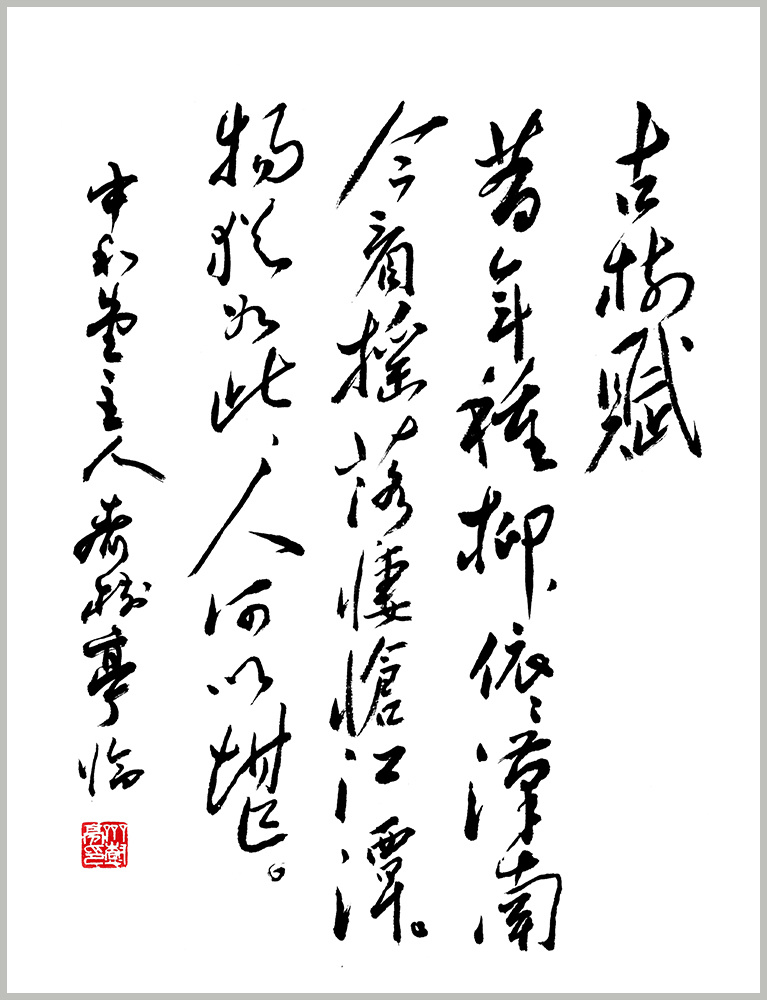 古树赋
昔年種柳，依依漢南
今看摇落，悽愴江潭。
物猶如此，人何以堪。
中和堂主人齐树亭临